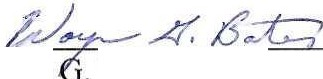 Wayne G. Bates
G.